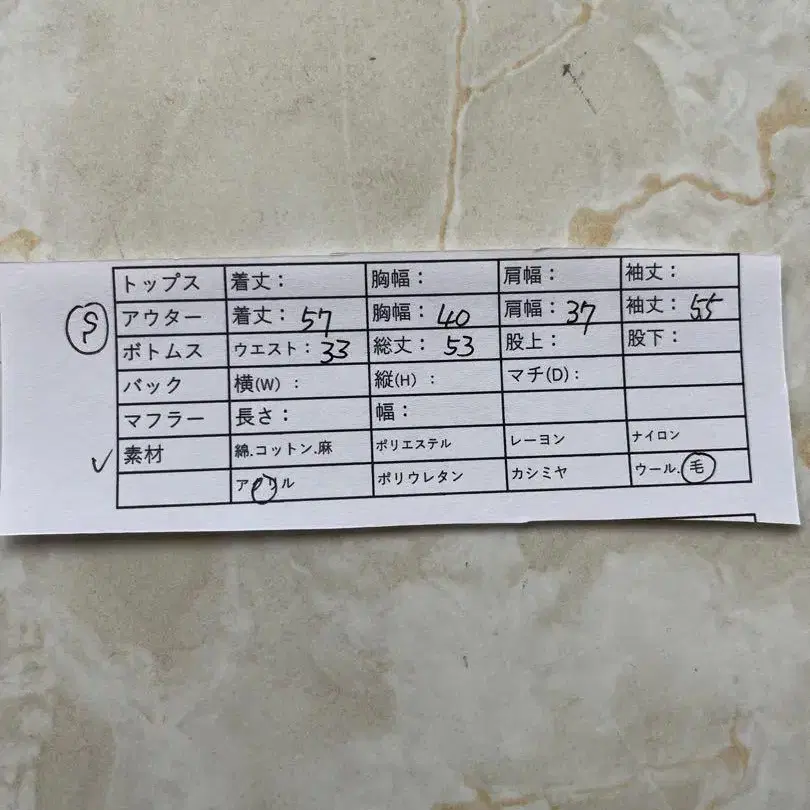 トップス 着丈： 胸幅： 肩幅： 袖丈：
アウター 着丈：57 胸幅：40 肩幅：37 袖丈：55
ボトムス ウエスト：33 総丈：53 股上： 股下：
バック 横(W)： 縦(H)： マチ(D)：
マフラー 長さ： 幅：
✓ 素材 綿.コットン.麻 ポリエステル レーヨン ナイロン
アクリル ポリウレタン カシミヤ ウール.毛